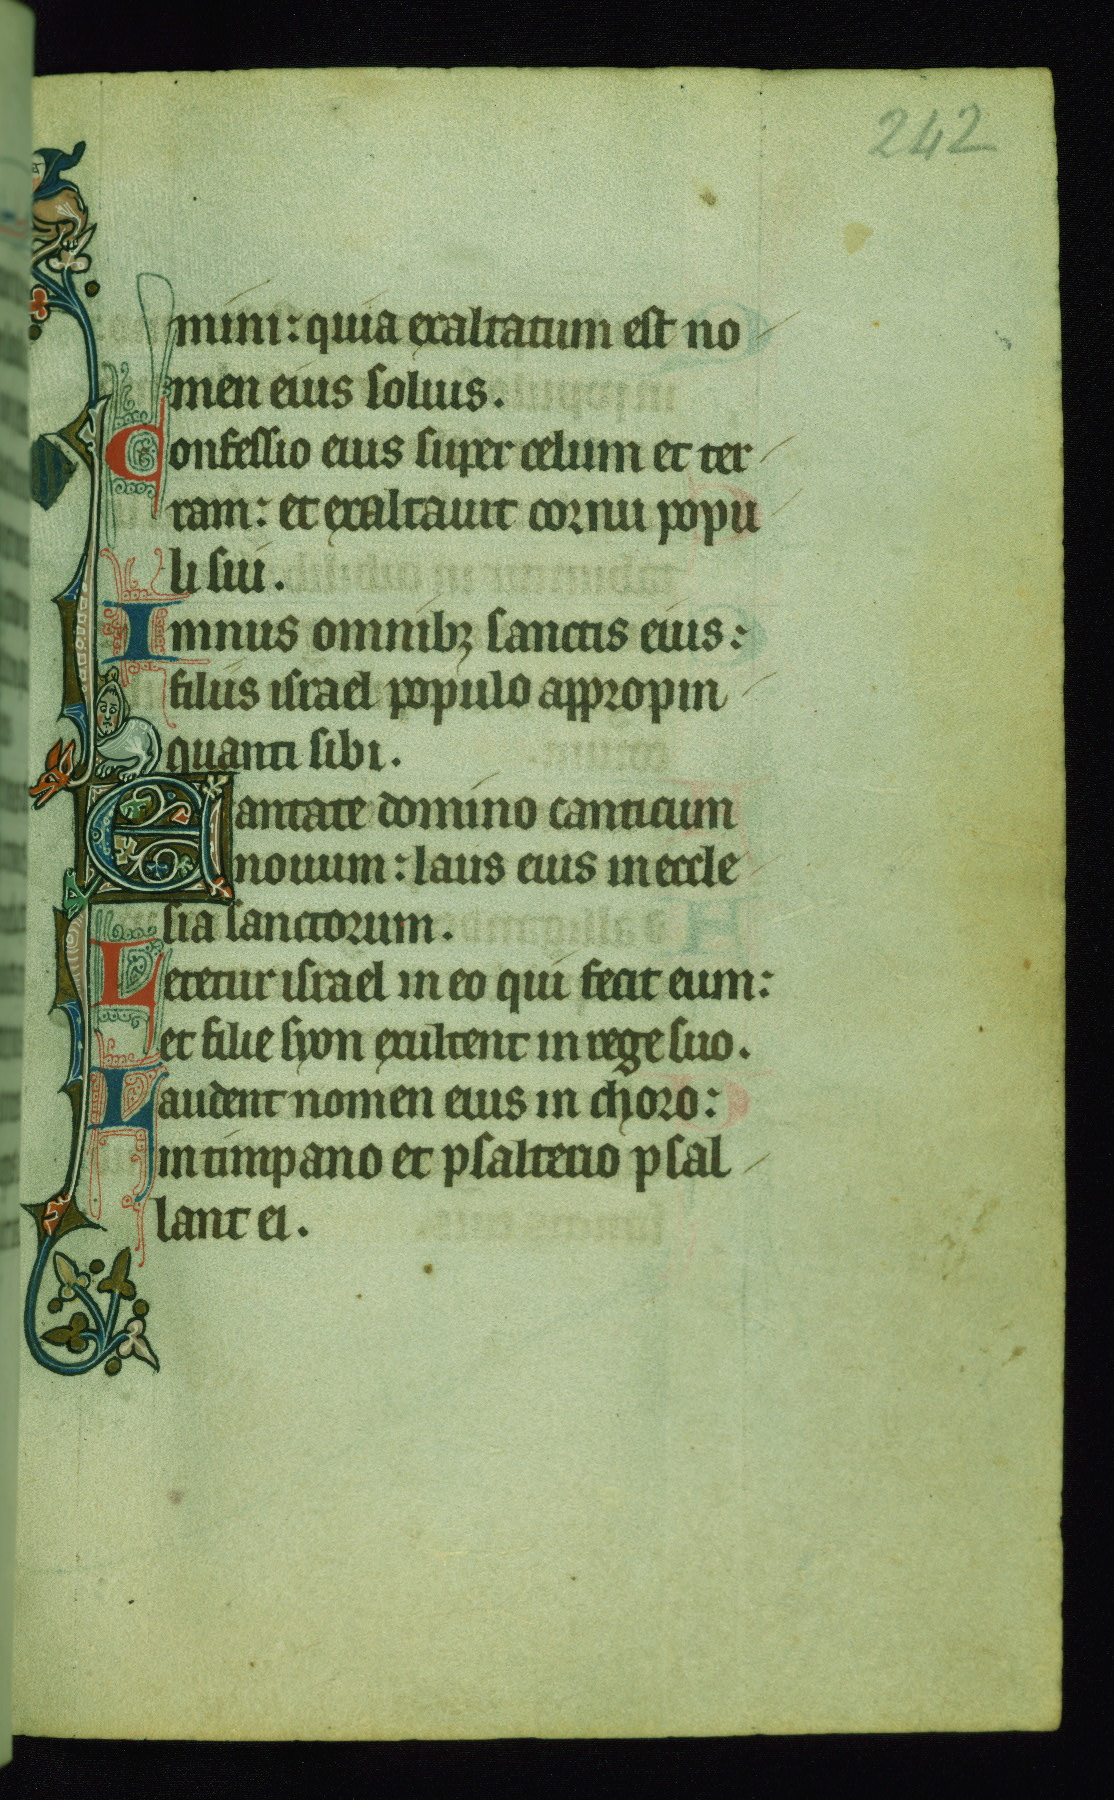 242
mini: quia exaltatum est no
men eius solius.
Confessio eius super celum et ter
ram: et exaltauit cornu popu
li sui.
Imnus omnibꝫ sanctis eius:
filiis israel populo appropin
quanti sibi.
Cantate domino canticum
nouum: laus eius in eccle
sia sanctorum.
Letetur israel in eo qui fecit eum:
et filie syon exultent in rege suo.
Laudent nomen eius in choro:
in timpano et psalterio psal
lant ei.